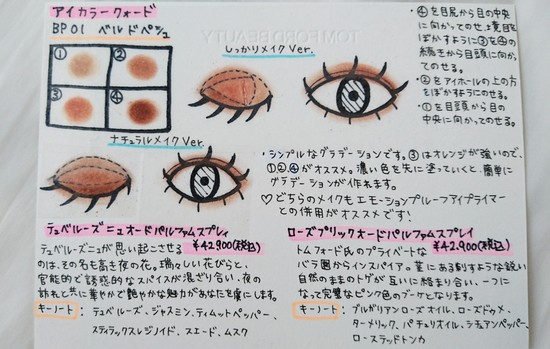 アイカラークォード
BP01 ベルドペシュ
① ②
③ ④
TOM FORD BEAUTY
しっかりメイクVer.
ナチュラルメイクVer.
・④を目尻から目の中央
に向かってのせ、境目を
ぼかすように③を④の
続きから目頭に向かっ
てのせる。
・②をアイホールの上の方
をぼかすようにのせる。
・①を目頭から目の
中央に向かってのせる。
・シンプルなグラデーションです。③はオレンジが強いので、
①②④がオススメ。濃い色を先に塗っていくと、簡単に
グラデーションが作れます。
♡どちらのメイクもエモーションプルーフアイプライマー
との併用がオススメです!
チュベルーズ ニュ オード パルファム スプレィ
¥42.900(税込)
チュベルーズニュが思い起こさせる
のは、その名も高き夜の花。瑞々しい花びらと、
官能的で誘惑的なスパイスが混ざり合い、夜の
訪れと共に華やかで艶やかな魅力があなたを虜にします。
キーノート: チュベルーズ、ジャスミン、ティムットペッパー、
スティラックスレジノイド、スエード、ムスク
ローズ プリック オード パルファム スプレィ
¥42.900(税込)
トムフォード氏のプライベートな
バラ園からインスパイア。茎にある刺すような鋭い
自然のままのトゲが互いに絡まり合い、一つに
なって完璧なピンク色のブーケとなります。
キーノート: ブルガリアンローズオイル、ローズドゥメ、
ターメリック、パチュリオイル、シチュアンペッパー、
ローステッドトンカ